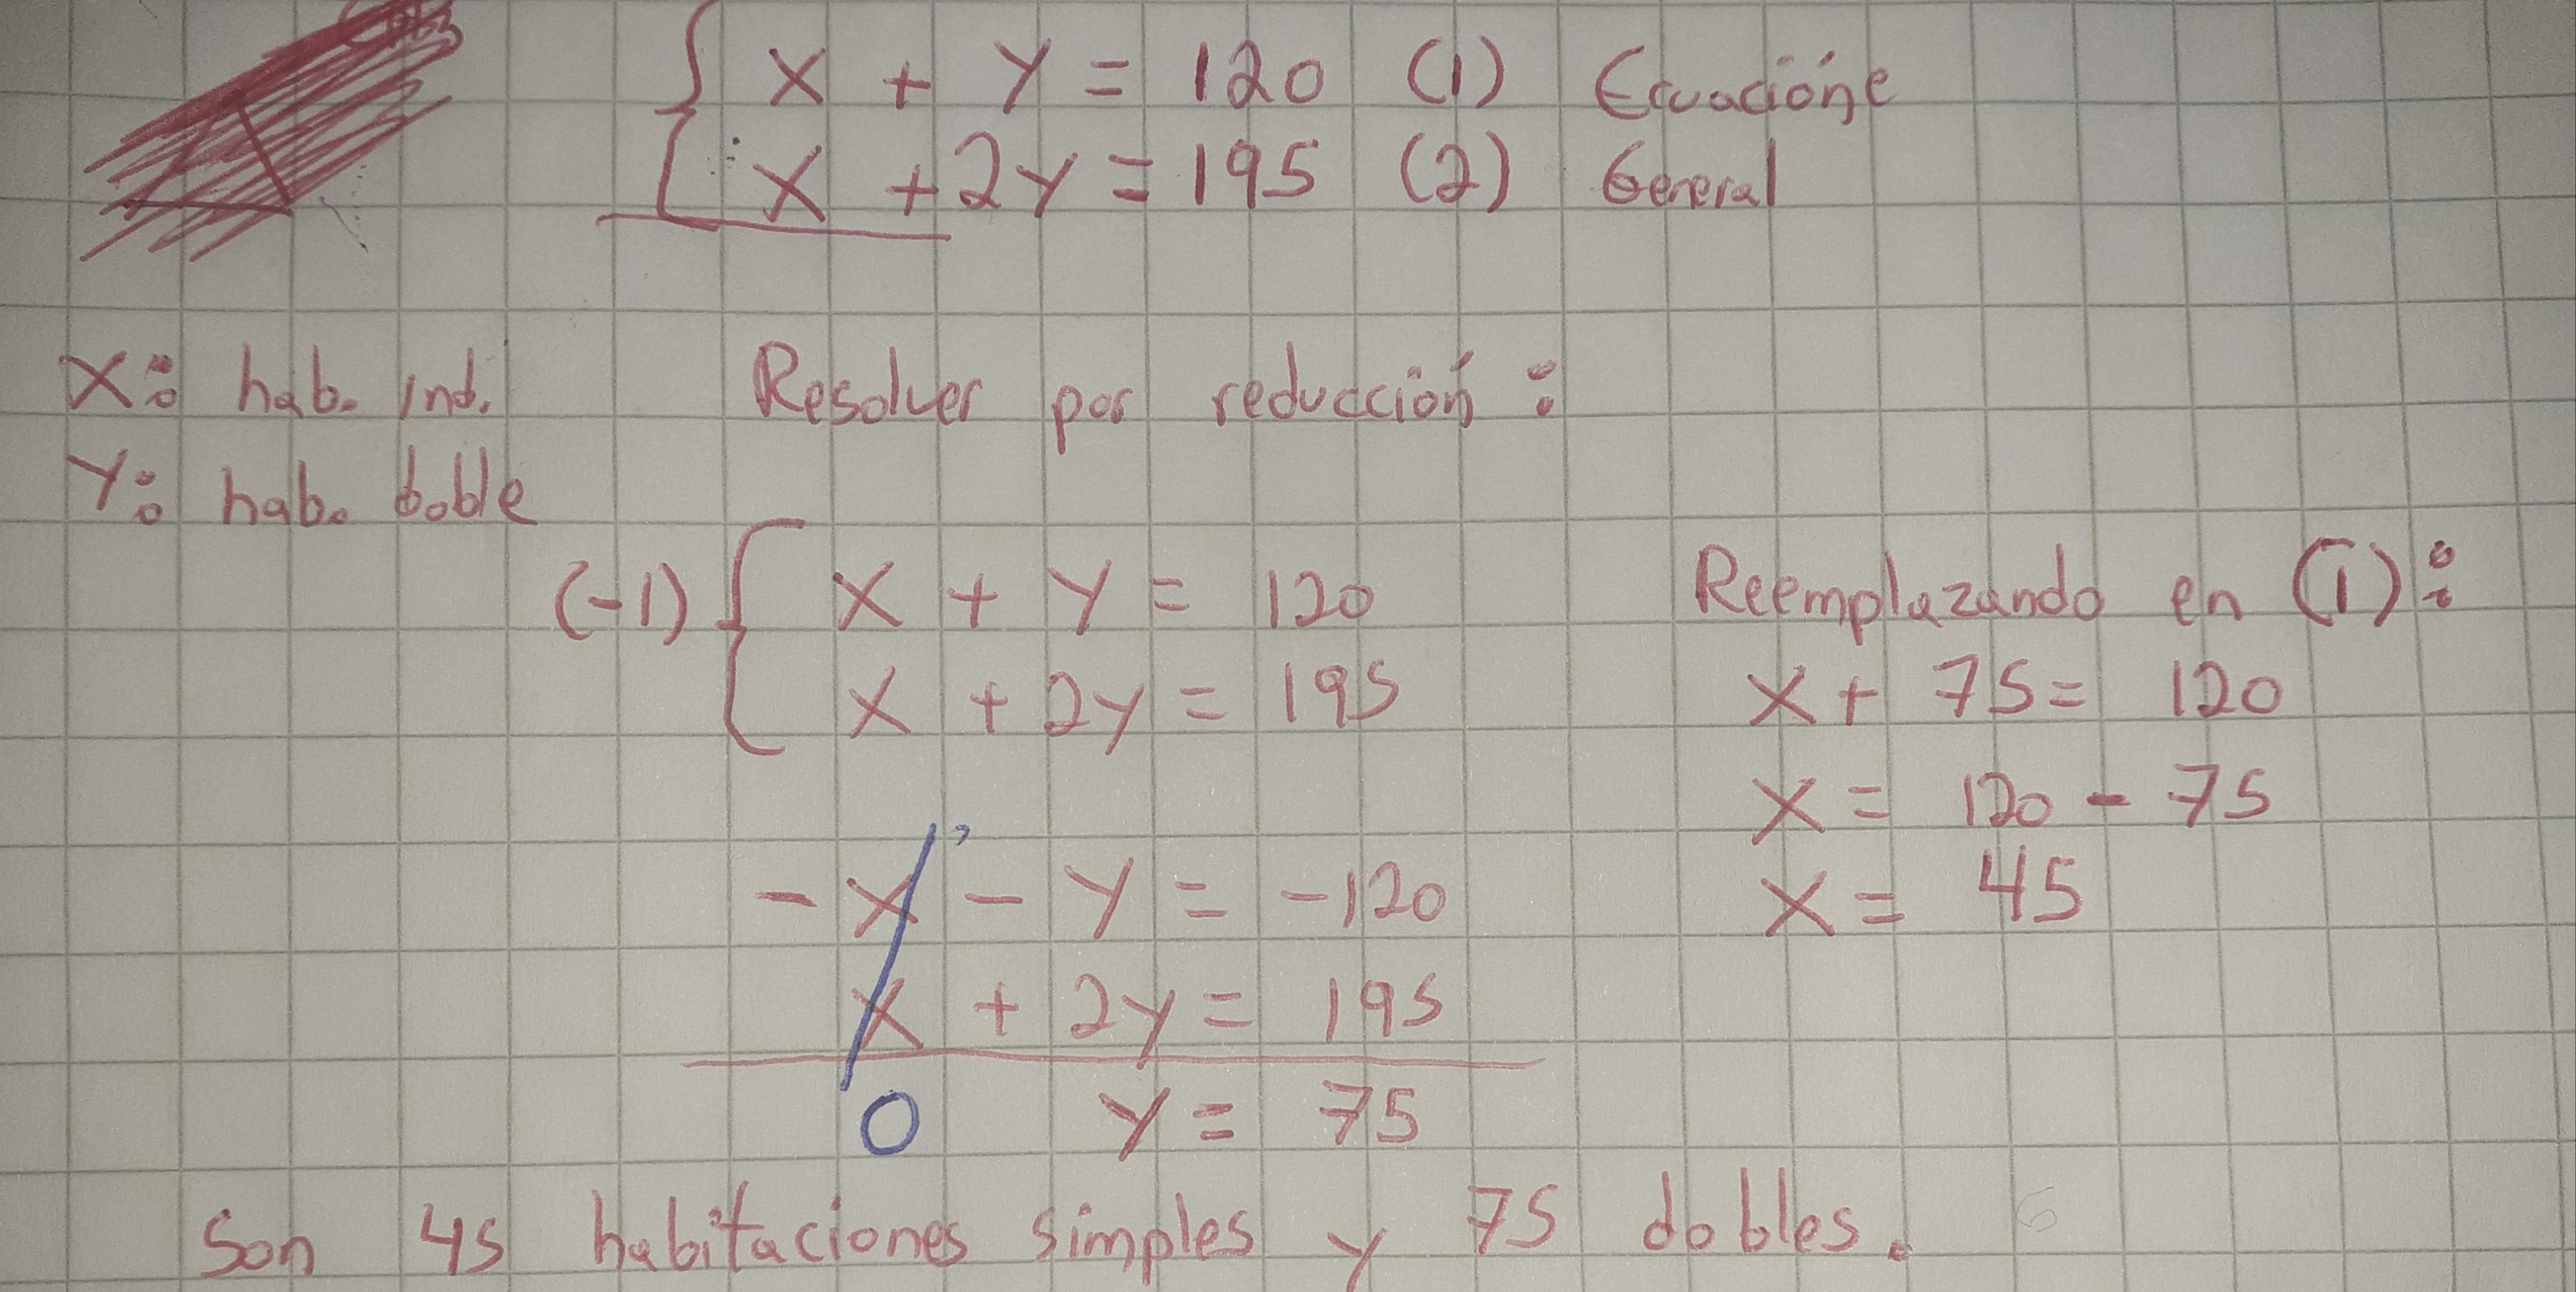 X + Y = 120 (1) Ecuacióne
X + 2Y = 195 (2) General
X: hab. Ind.
Y: hab. boble
Resolver por reducción:
(-1) X + Y = 120
X + 2Y = 195
- X - Y = -120
X + 2Y = 195
0 Y = 75
Reemplazando en (1):
X + 75 = 120
X = 120 - 75
X = 45
Son 45 habitaciones simples y 75 dobles.